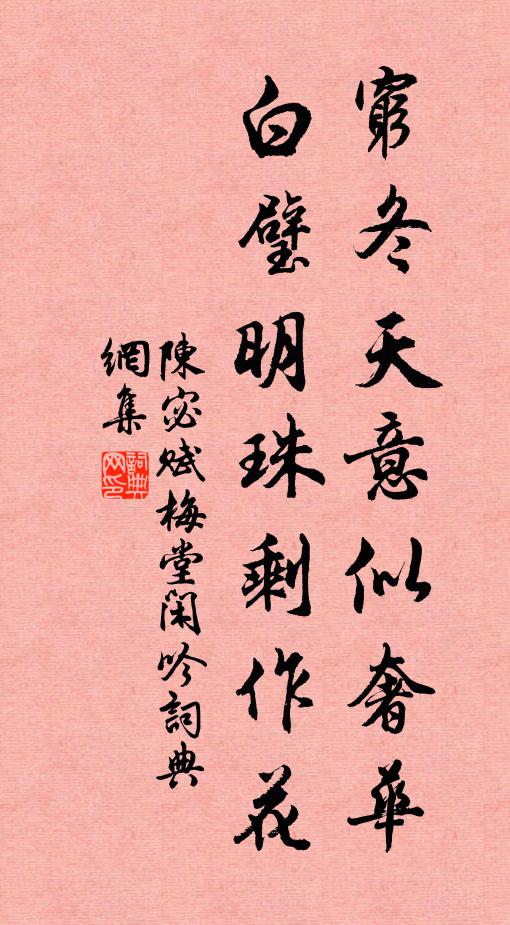 窮冬天意似奢華
白璧明珠剩作花
陳宓賦梅堂閑吟詞典
網集
詞典網印